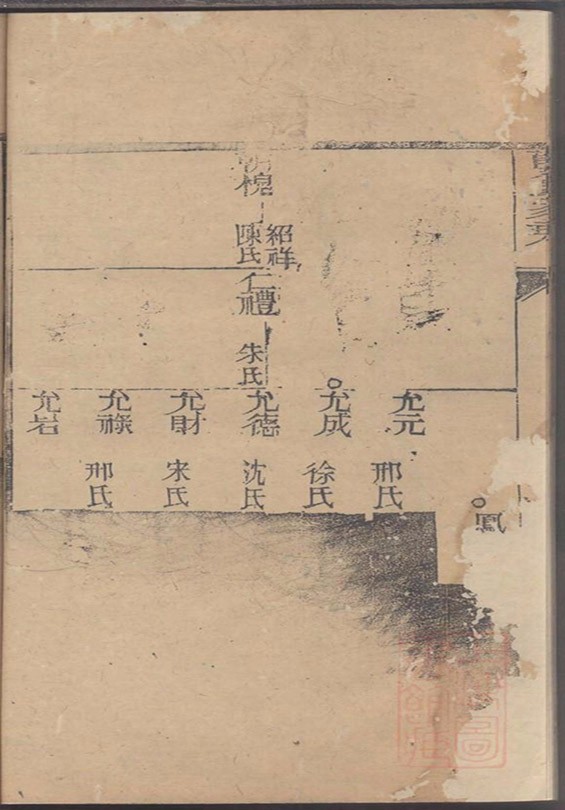 槐
紹祥
陳氏
仁禮
朱氏
允元
邢氏
允成
徐氏
允德
沈氏
允財
宋氏
允祿
邢氏
允岩